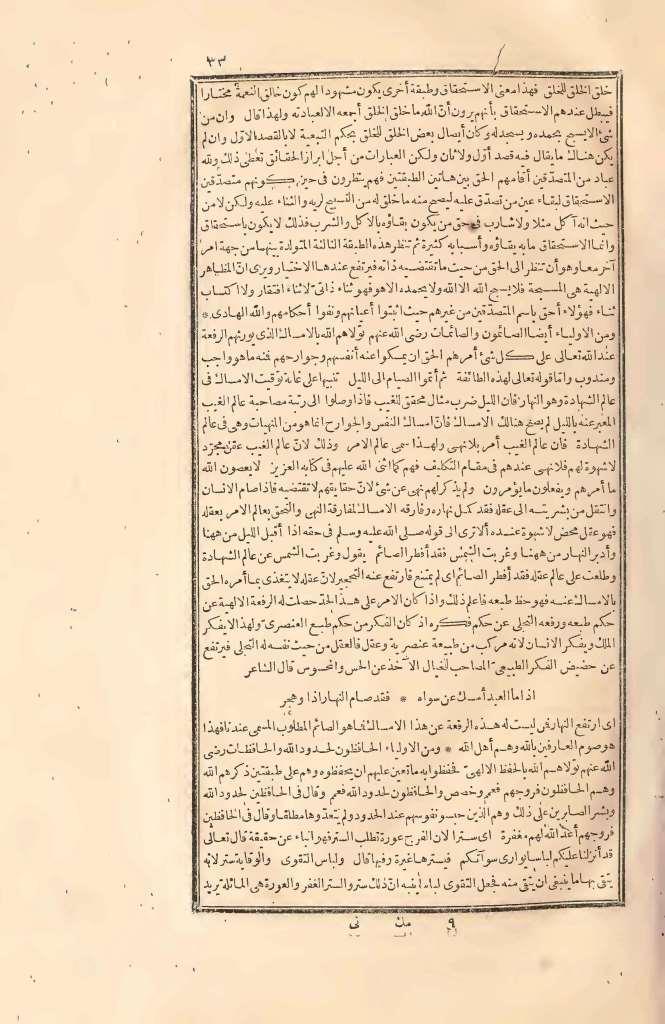 ٣٣
خلق الخلق للخلق فهذا معنى الاستحقاق وطبقة أخرى يكون مشهود الهم كون خالق النعمة مختارا
فيبطل عندهم الاستحقاق بأنهم يرون أنّ الله ما خلق الخلق أجمعه الا لعبادته ولهذا قال وان من
شئ الا يسبح بحمده ويسجد له وكأن أيصال بعض الخلق للخلق بحكم التبعية لا بالقصد الاوّل وان لم
يكن هنالك ما يقال فيه قصد أوّل ولا ثان ولكن العبارات من أجل ابراز الحقائق تعطى ذلك ولله
عباد من المتصدّقين أقامهم الحق بين هاتين الطبقتين فهم ينظرون فى حين كونهم متصدّقين
الاستحقاق لبقاء عين من تصدّق عليه ليصح منه ما خلق له من التسبيح لربه والثناء عليه ولكن لا من
حيث انه آكل مثلا ولا شارب فى حق من يكون بقاؤه بالاكل والشرب فذلك لا يكون باستحقاق
وانما الاستحقاق ما به بقاؤه وأسبابه كثيرة ثم تنظر هذه الطبقة الثالثة المتولدة بينهما من جهة امر
آخر معا وهو أن تنظر الى الحق من حيث ما تقتضيه ذاته فيرتفع عندها الاختيار ويرى انّ المظاهر
الالهية هى المسبحة فلا يسبح الله الا الله ولا يحمده الا هو فهو ثناء ذاتى لا ثناء افتقار ولا اكتساب
ثناء فهؤلاء أحق باسم المتصدّقين من غيرهم حيث اثبتوا أعيانهم ونفوا أحكامهم والله الهادى *
ومن الاولياء أيضا الصائمون والصائمات رضى الله عنهم تولاهم الله بالامساك الذى يورثهم الرفعة
عند الله تعالى على كل شئ أمرهم الحق ان يمسكوا عنه أنفسهم وجوارحهم فمنه ما هو واجب
ومندوب وأتما قوله تعالى لهذه الطائفة ثم أتموا الصيام الى الليل تنبيها على غاية توقيت الامساك فى
عالم الشهادة وهو النهار فان الليل ضرب مثال محقق للغيب فاذا وصلوا الى رتبة مصاحبة عالم الغيب
المعبر عنه بالليل لم يصح هنالك الامساك فانّ امساك النفس والجوارح انما هو من النهيات وهى فى عالم
الشهادة فان عالم الغيب أمر بلا نهى ولهذا سمى عالم الامر وذلك لانّ عالم الغيب عقل مجرّد
لا شهوة لهم فلا نهى عندهم فى مقام التكليف فهم كما اثنى الله عليهم فى كتابه العزيز لا يعصون الله
ما أمرهم ويفعلون ما يؤمرون ولم يذكر لهم نهى عن شئ لانّ حقايقهم لا تقتضيه فاذا صام الانسان
وانتقل من بشريته الى عقله فقد كمل نهاره وفارقه الامساك لمفارقة النهى والتحق بعالم الامر بعقله
فهو عقل محض لا شهوة عنده ألا ترى الى قوله صلى الله عليه وسلم فى حقه اذا أقبل الليل من ههنا
وأدبر النهار من ههنا وغربت الشمس فقد أفطر الصائم يقول وغربت الشمس عن عالم الشهادة
وطلعت على عالم عقله فقد أفطر الصائم اى لم يمتنع فارتفع عنه التحجير لانّ عقله لا يتغذى بما أمره الحق
بالامساك عنه فهو حظ طبعه فاعلم ذلك واذا كان الامر على هذا الحدّ حصلت له الرفعة الالهية عن
حكم طبعه ورفعه التجلى عن حكم فكره اذ كان الفكر من حكم طبع العنصرى ولهذا لا يفكر
الملك ويفكر الانسان لانه مركب من طبيعة عنصرية وعقل فالعقل من حيث نفسه له التجلى فيرتفع
عن حضيض الفكر الطبيعىّ المصاحب للخيال الآخذ عن الحس والمحسوس قال الشاعر
اذا ما العبد أمسك عن سواه * فقد صام النهار اذا وهجر
اى ارتفع النهار فمن ليست له هذه الرفعة عن هذا الامساك فما هو الصائم المطلوب المسمى عندنا فهذا
هو صوم العارفين بالله وهم أهل الله * ومن الاولياء الحافظون لحدود الله والحافظات رضى
الله عنهم تولاهم الله بالحفظ الالهىّ فحفظوا به ما تعين عليهم ان يحفظوه وهم على طبقتين ذكرهم الله
وهم الحافظون فروجهم فعمم وخصص والحافظون لحدود الله فعمم وقال فى الحافظين لحدود الله
وبشر الصابرين على ذلك وهم الذين حبسوا نفوسهم عند الحدود ولم يتعدّوها مطلقا وقال فى الحافظين
فروجهم أعدّ الله لهم مغفرة اى سترا لان الفرج عورة تطلب الستر فهو انباء عن حقيقة قال تعالى
قد أنزلنا عليكم لباسا يوارى سوآتكم فيسترها غيرة وفيها قال ولباس التقوى والوقاية ستر لانه
يتقى بها ما ينبغى ان يتقى منه فجعل التقوى لباسا لينبه انّ ذلك ستر والستر الغفر والعورة هى المائلة يريد
٩ مك نى